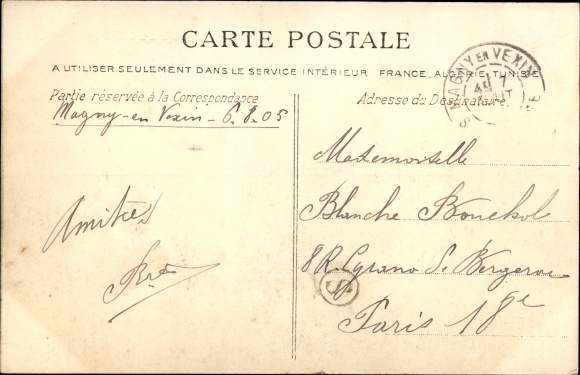 CARTE POSTALE
A UTILISER SEULEMENT DANS LE SERVICE INTÉRIEUR FRANCE, ALGERIE, TUNISIE
Partie réservée à la Correspondance
Magny-en Vexin - 6.8.05
Amitiés
Adresse du Destinataire
MAGNY EN VEXIN
Mademoiselle
Blanche
8 R. Cyrano de Bergerac
Paris 18e